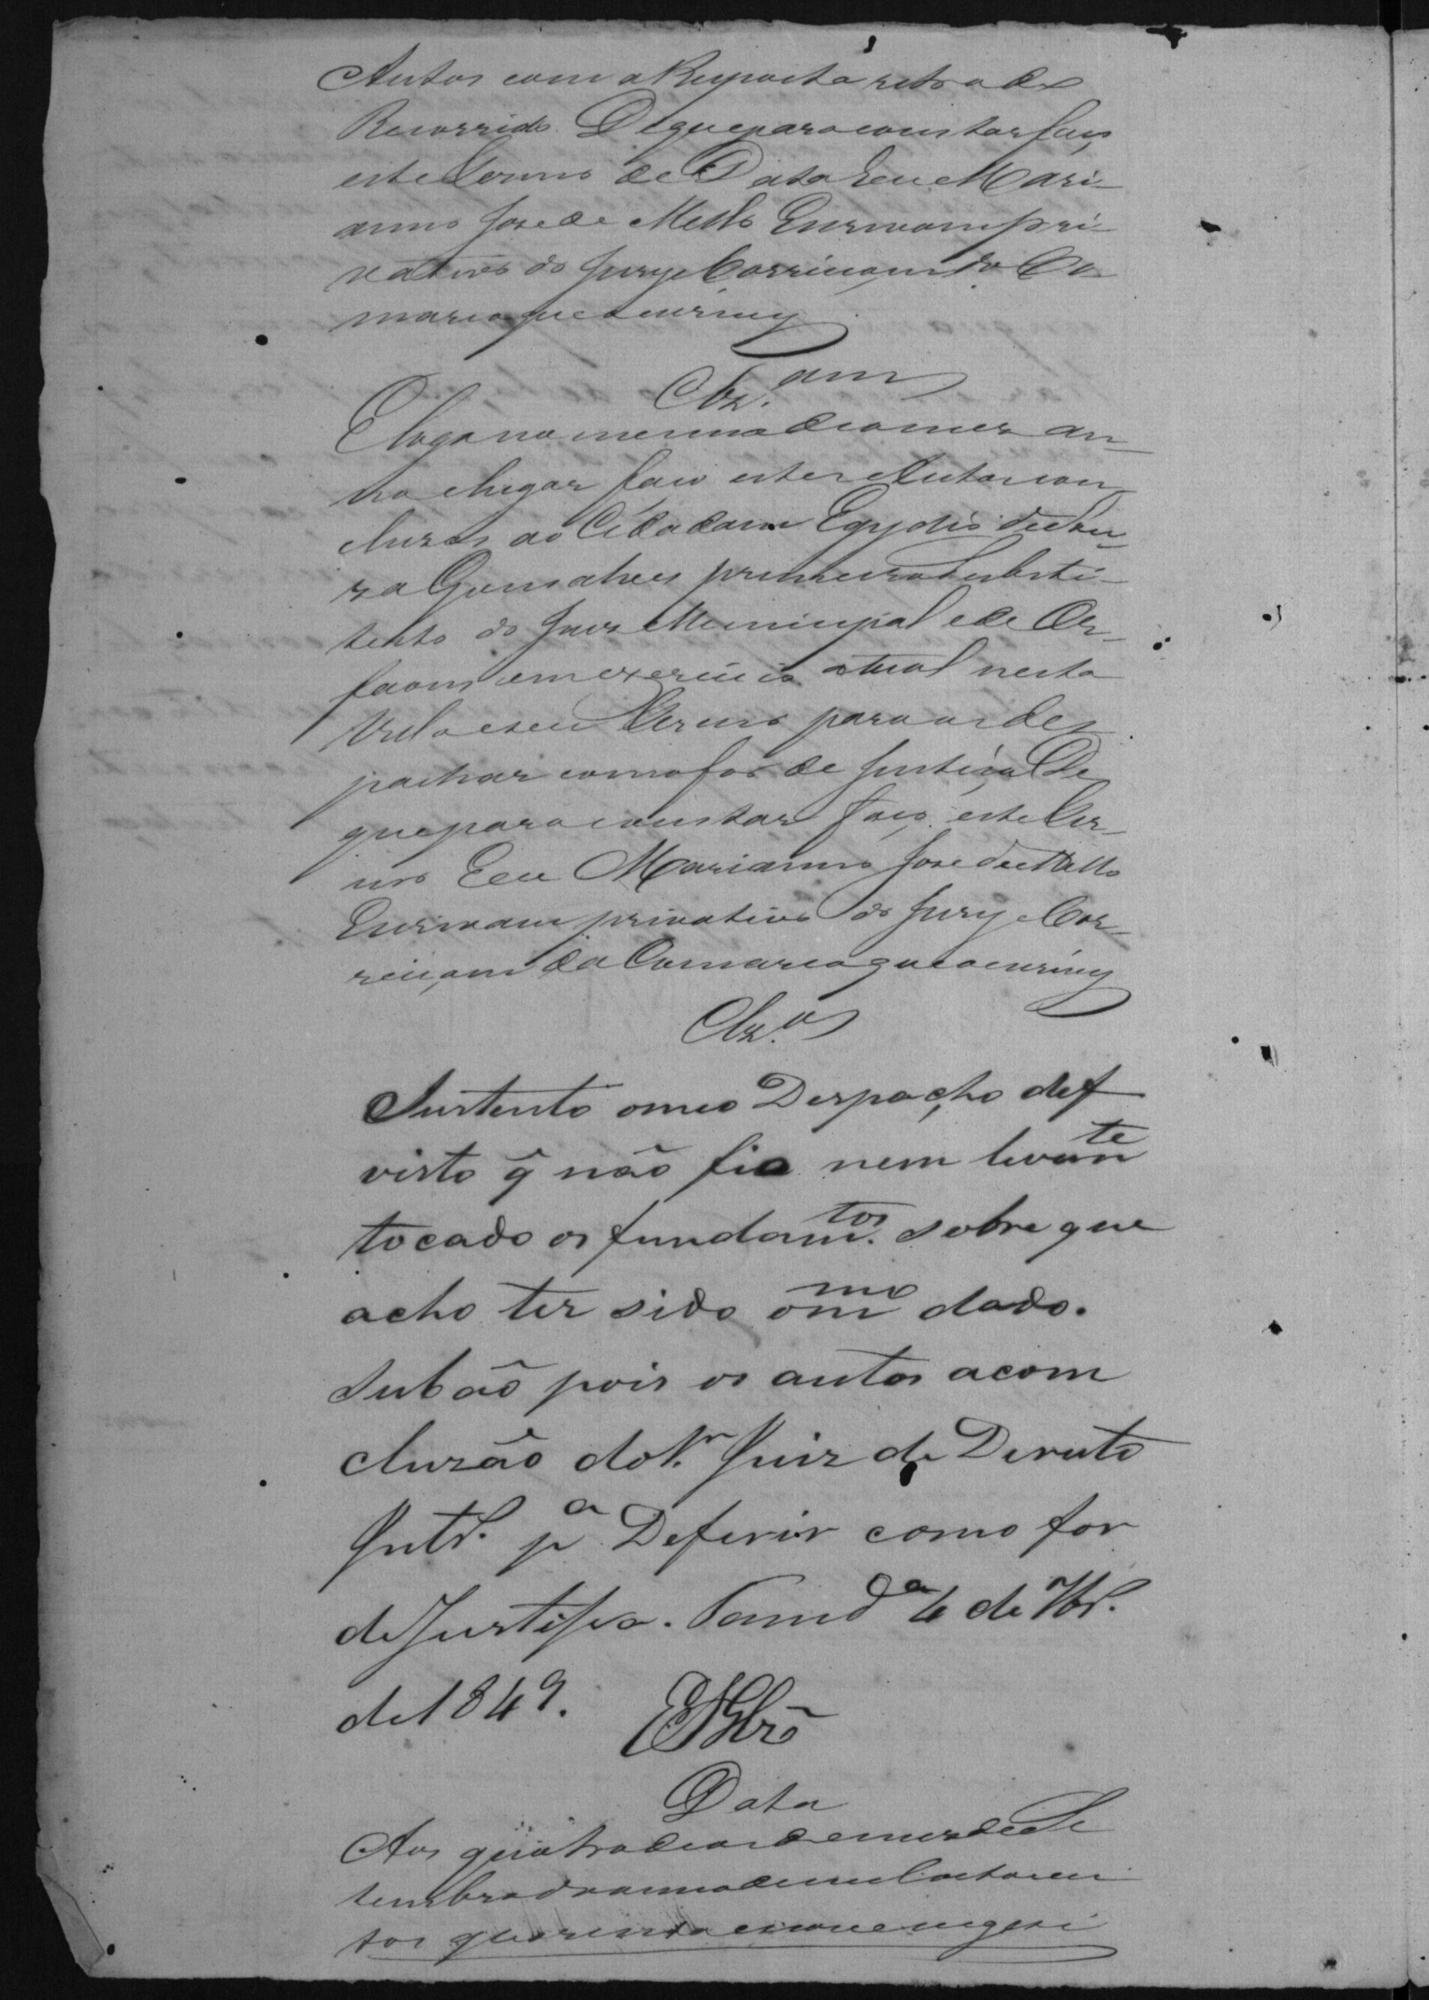 Autos com a Resposta retro do
Recorrido. De que para constar faço
este termo de Data Eu Mari-
anno Jose de Mello Escrivam pri-
vativo do Jury e Correiçam da Co-
marca que o escrevy
Clz.am
E logo no mesmo dia mes an-
no faço estes Autos con
cluzos ao Cidadam Egydio de
Gonsalves primeiro Substi-
tuto do Juiz Municipal e de Or-
faons em exercicio atual nesta
Villa e seu Termo para os des
pachar como for de Justiça De
que para constar faço este Ter-
mo Eeu Marianno Jose de Mello
Escrivam privativo do Jury e Cor-
reiçam da Comarca que o escrevy
Clz.os
Sustento o meo Despacho de f
visto q̃ não fica nem levem.te
tocado os fundam.tos sobre que
acho ter sido o m.mo dado.
Subão pois os autos a com
cluzão do Sr. Juiz de Dereito
Intr.º p.a Deferir como for
de Justissa. 4 de 7br.
de 1849.
Data
Aos quatro dias do mes de Se
tembro do anno de mil oito cen
tos quarenta e nove